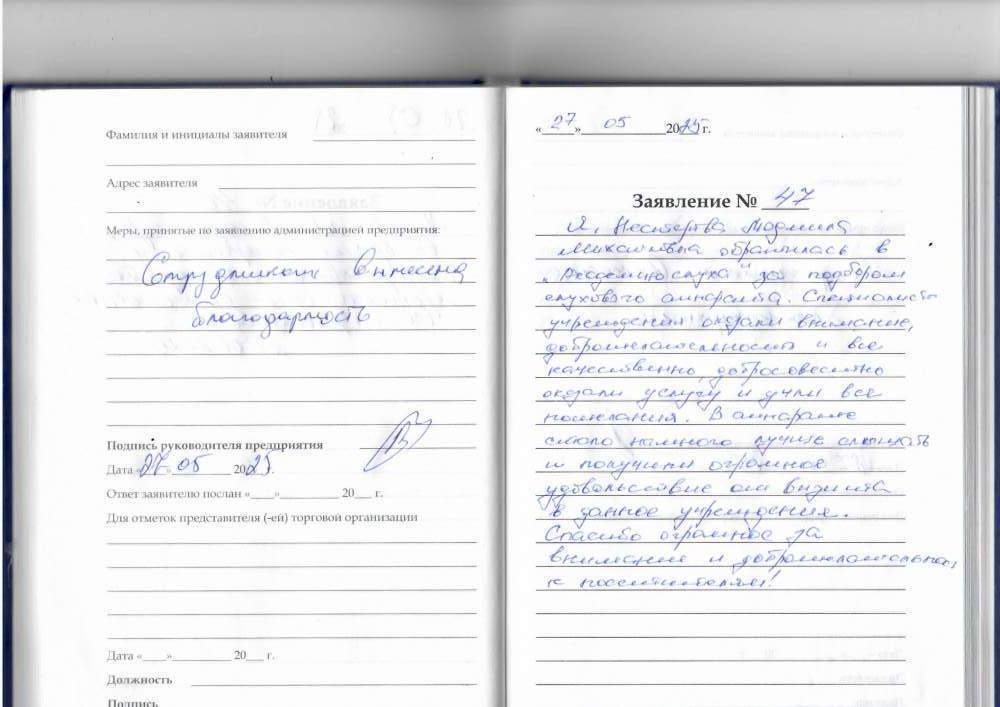 Фамилия и инициалы заявителя
Адрес заявителя
Меры, принятые по заявлению администрацией предприятия:
Сотрудникам вынесена
благодарность
Подпись руководителя предприятия
Дата «27» 05 2025 г.
Ответ заявителю послан «___»__________ 20___ г.
Для отметок представителя (-ей) торговой организации
Дата «___»__________ 20___ г.
Должность
Подпись
«27» 05 2025 г.
Заявление № 47
Я, Нестерова Людмила
Михайловна обратилась в
"Академию слуха" за подбором
слухового аппарата. Специалисты
учреждения оказали внимание,
доброжелательность и все
качественно, добросовестно
оказали услугу и учли все
пожелания. В аппарате
стало намного лучше слышать
и получили огромное
удовольствие от визита
в данное учреждения.
Спасибо огромное за
внимание и доброжелательность
к посетителям!